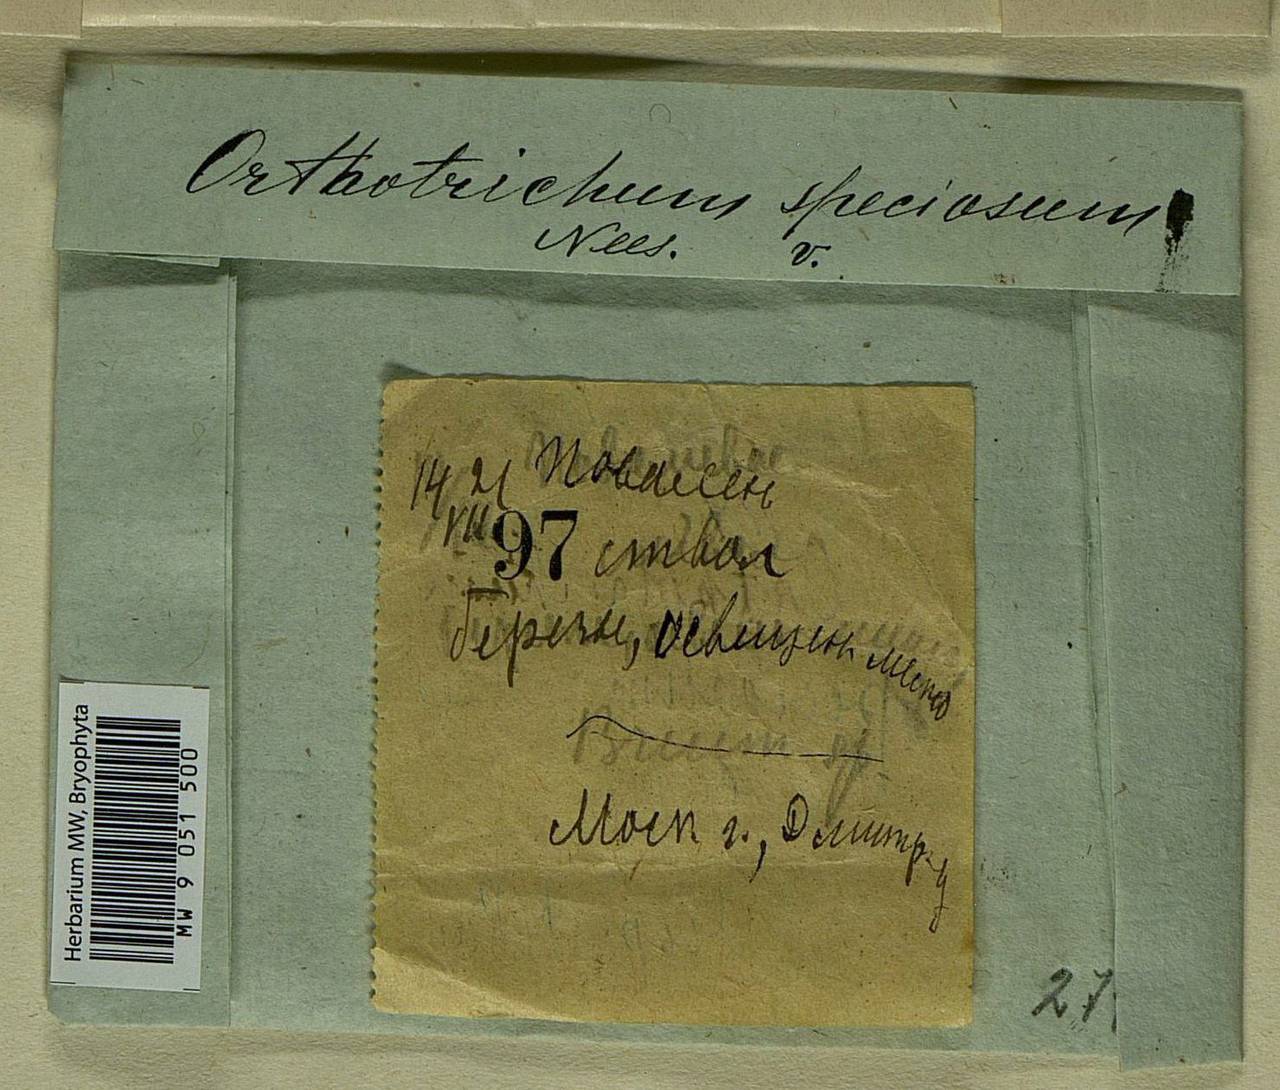 Orthotrichum speciosum
Nees. v.
14 21
VII
97 ствол
березы, освещен место
Моск г., Дмитр. у
Herbarium MW, Bryophyta
MW 9 051 500
27